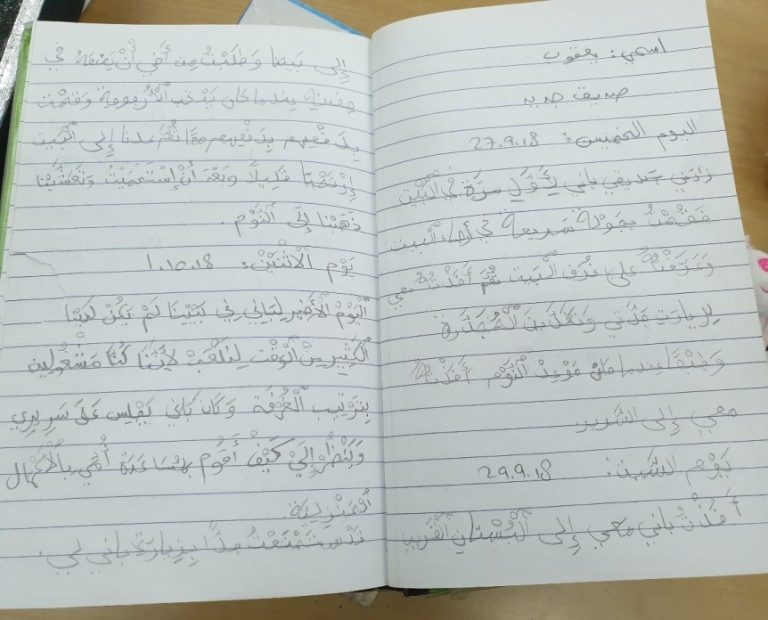 اسمي: يعقوب
صديق جديد
اليوم الخميس: 27.9.18
زارني صديقي باني لِأَوَّلِ مرَّة في اَلْبَيْت
فَقُمْتُ بجولة سَريعة في أرجاء البيت
وَعَرَّفْتُهُ على غُرَف الْبَيت ثُمَّ أَخَذْتُهُ معي
لِزيارت جَدَّتي وَتَغَذَّيْنا الْمُجَدَّرة
وَطبْعًا عِندما حانَ مَوْعِدُ النَّوْم أَخَذْتُهُ
معي إِلى السَّرير.
يَوْم السَّبت: 29.9.18
أَخَذْتُ باني معي إِلى اَلْبُسْتان اَلْقَريب
إِلى بَيتنا وَطَلَبْتُ مِن أَخي أَنْ يَضَعَهُ في
حِضنِهِ عِندما كان يَرْكَب اَلْأُرجوحة وَقُمْت
بِدَفْعِهِم معًا ثُمَّ عُدنا إِلى اَلْبَيت
إِرْتَحْنا قَليلًا وبَعْدَ أَنْ إِسْتَحْمَيْتُ وَتَعَشَّيْنا
ذهَبْنا إِلَى اَلنَّوْم.
يَوْم اَلْاثْنَيْن: 1.10.18
اَلْيَوْم اَلْأَخير لِبَاني في بَيْتِنا لَمْ يَكُنْ لَدَيْنا
اَلْكَثير مِنَ اَلْوَقْت لِنَلْعَبْ لِأَنَّنا كُنَّا مَشْغولين
بِتَرْتيب اَلْغُرْفَة وَكانَ باني يَجْلِس عَلَى سَريري
وَيَنْظُر إِلَيَّ كَيْفَ أَقوم بِمُسَاعَدَة أُمّي بِالْأَعْمال
اَلْمَنْزِلِيَّة.
لَقَد اسْتَمْتَعْتُ جِدًّا بِزِيارة باني لي.